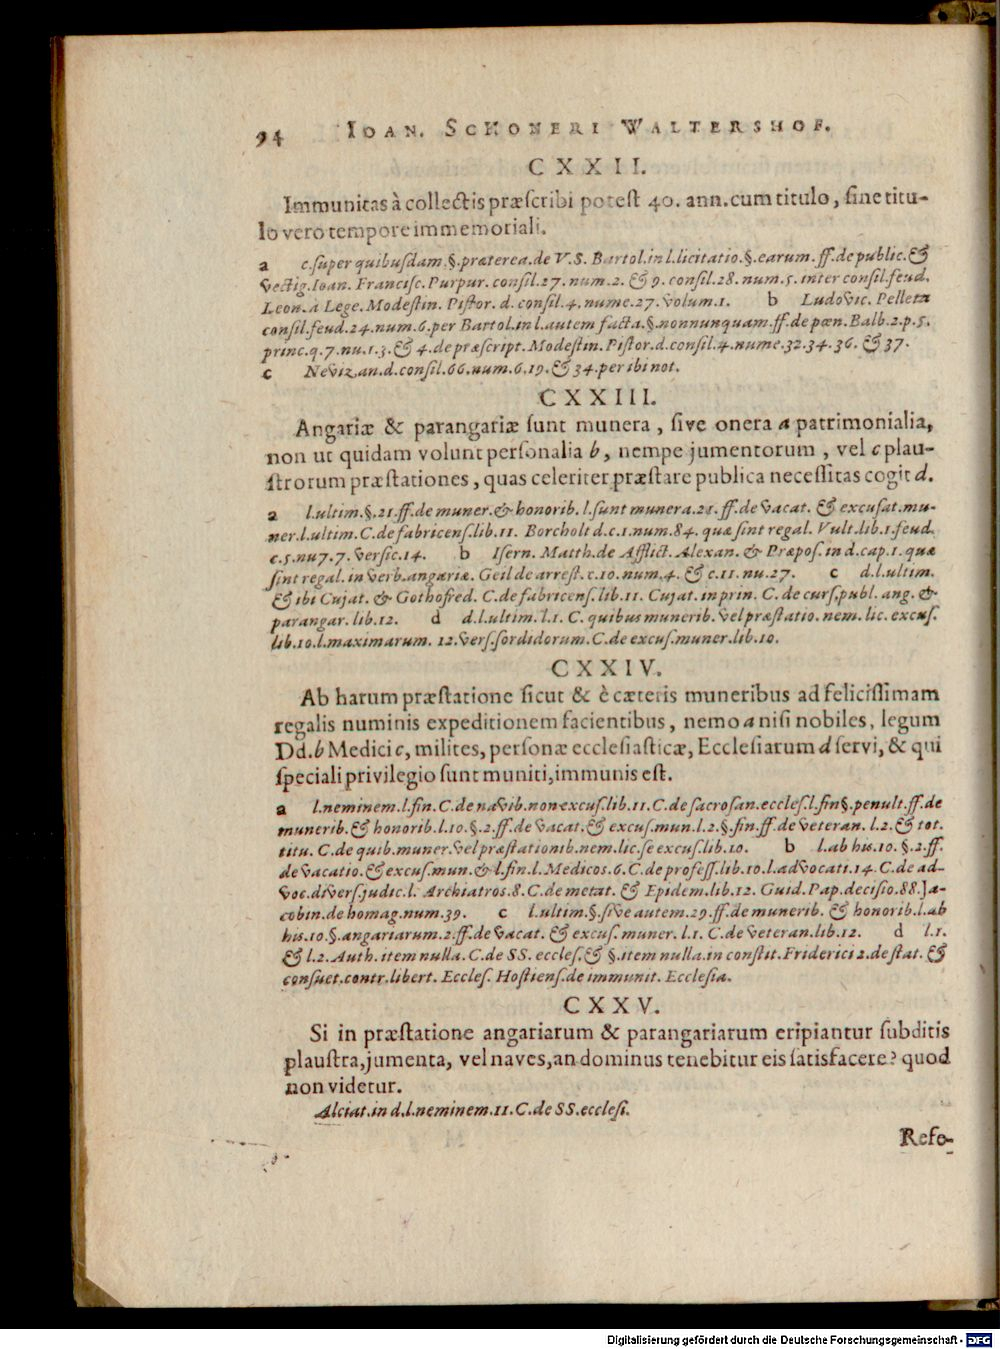 94 IOAN. SCHONERI WALTERSHOF.
CXXII.
Immunitas à collectis præscribi potest 40. ann. cum titulo, sine titu-
lo vero tempore immemoriali.
a c. super quibusdam. §. præterea. de V. S. Bartol. in l. licitatio. §. earum. ff. de public. &
vectig. Ioan. Francisc. Purpur. consil. 27. num. 2. & 9. consil. 28. num. 5. inter consil. feud.
Leon. à Lege. Modestin. Pistor. d. consil. 4. nume. 27. volum. 1. b Ludovic. Pelleta
consil. feud. 24. num. 6. per Bartol. in l. autem facta. §. nonnunquam. ff. de pœn. Balb. 2. p. 5.
princ. q. 7. nu. 1. 3. & 4. de præscript. Modestin. Pistor. d. consil. 4. nume. 32. 34. 36. & 37.
c Nevizan. d. consil. 66. num. 6. 19. & 34. per ibi not.
CXXIII.
Angariæ & parangariæ sunt munera, sive onera a patrimonialia,
non ut quidam volunt personalia b, nempe jumentorum, vel c plau-
strorum præstationes, quas celeriter præstare publica necessitas cogit d.
a l. ultim. §. 21. ff. de muner. & honorib. l. sunt munera. 21. ff. de vacat. & excusat. mu-
ner. l. ultim. C. de fabricens. lib. 11. Borcholt d. c. 1. num. 84. quæ sint regal. Vult. lib. 1. feud.
c. 5. nu 7. 7. versic. 14. b Isern. Matth. de Afflict. Alexan. & Præpos. in d. cap. 1. quæ
sint regal. in verb. angariæ. Geil de arrest. c. 10. num. 4. & c. 11. nu. 27. c d. l. ultim.
& ibi Cujat. & Gothofred. C. de fabricens. lib. 11. Cujat. in prin. C. de curs. publ. ang. &
parangar. lib. 12. d d. l. ultim. l. 1. C. quibus munerib. vel præstatio. nem. lic. excus.
lib. 10. l. maximarum. 12. vers. sordidorum. C. de excus. muner. lib. 10.
CXXIV.
Ab harum præstatione sicut & è cæteris muneribus ad felicissimam
regalis numinis expeditionem facientibus, nemo a nisi nobiles, legum
Dd. b Medici c, milites, personæ ecclesiasticæ, Ecclesiarum d servi, & qui
speciali privilegio sunt muniti, immunis est.
a l. neminem. l. fin. C. de navib. non excus. lib. 11. C. de sacrosan. eccles. l. fin §. penult. ff. de
munerib. & honorib. l. 10. §. 2. ff. de vacat. & excus. mun. l. 2. §. fin. ff. de veteran. l. 2. & tot.
titu. C. de quib. muner. vel præstationib. nem. lic. se excus. lib. 10. b l. ab his. 10. §. 2. ff.
de vacatio. & excus. mun. & l. fin. l. Medicos. 6. C. de profess. lib. 10. l. advocati. 14. C. de ad-
voc. divers. judic. l. Archiatros. 8. C. de metat. & Epidem. lib. 12. Guid. Pap. decisio. 88. Ja-
cobin. de homag. num. 39. c l. ultim. §. sive autem. 29. ff. de munerib. & honorib. l. ab
his. 10. §. angariarum. 2. ff. de vacat. & excus. muner. l. 1. C. de veteran. lib. 12. d l. 1.
& l. 2. Auth. item nulla. C. de SS. eccles. & §. item nulla. in constit. Friderici 2. de stat. &
consuet. contr. libert. Eccles. Hostiens. de immunit. Ecclesia.
CXXV.
Si in præstatione angariarum & parangariarum eripiantur subditis
plaustra, jumenta, vel naves, an dominus tenebitur eis satisfacere? quod
non videtur.
Alciat. in d. l. neminem. 11. C. de SS. ecclesi.
Refo-
Digitalisierung gefördert durch die Deutsche Forschungsgemeinschaft - DFG